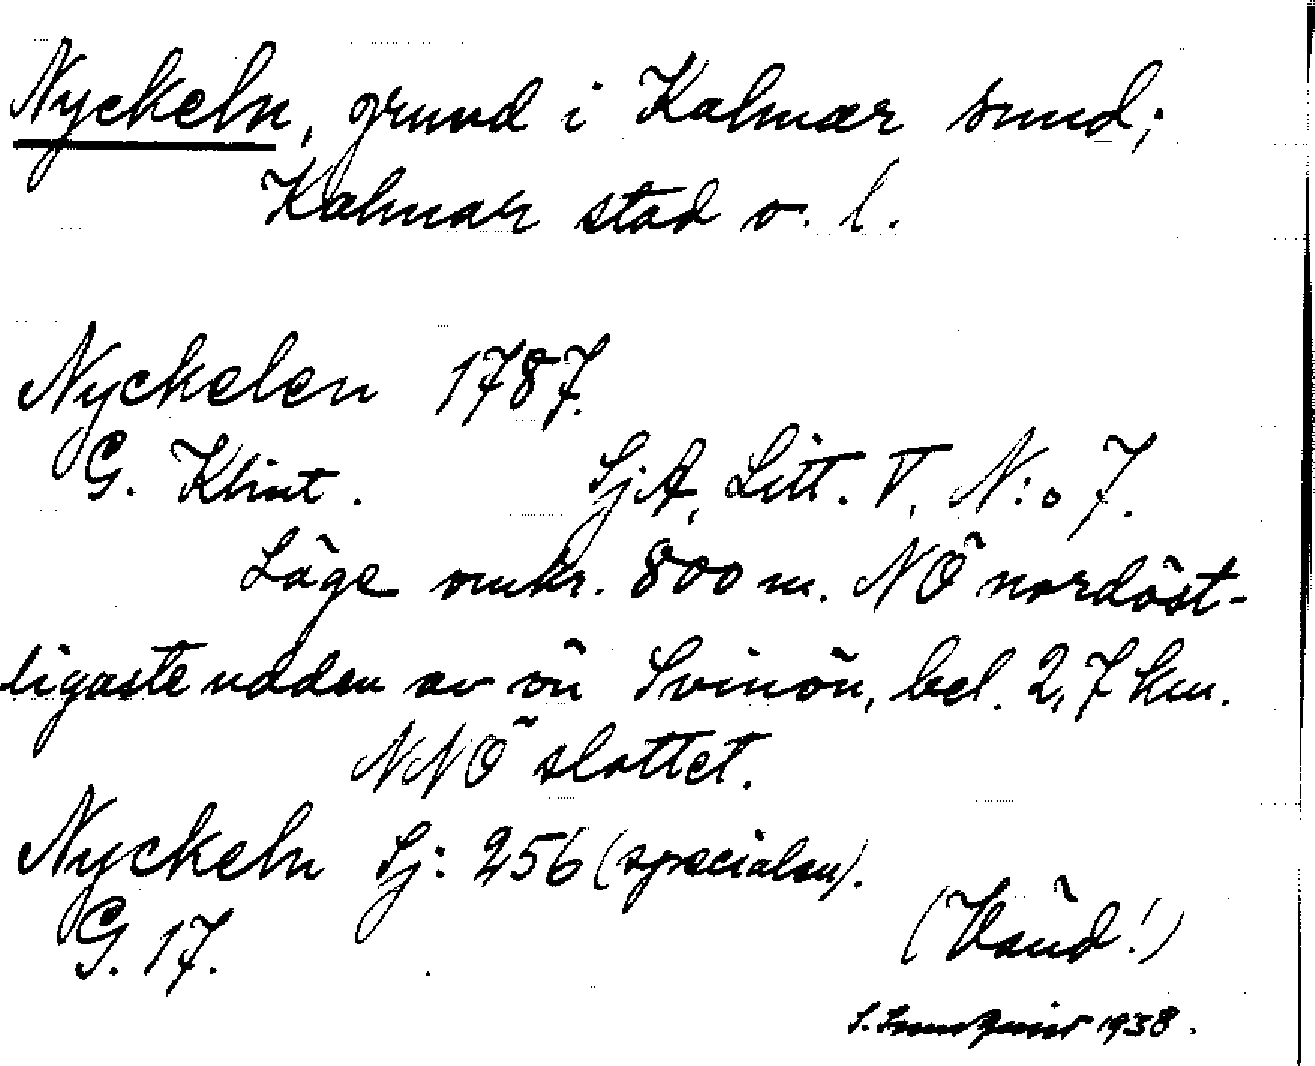 Nyckeln, grund i Kalmar sund;
Kalmar stad o. l.
Nyckelen 1787.
G. Klint. SjA, Litt. V, N:o 7.
Läge omkr. 800 m. NÖ nordöst-
ligaste udden av ön Svinön, bel. 2,7 km.
NNÖ slottet.
Nyckeln Sj: 256 (specialen).
G. 17.
(Vänd!)
S. 1938.